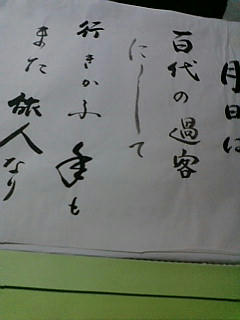 月日は
百代の過客
にして
行きかふ年も
また旅人なり